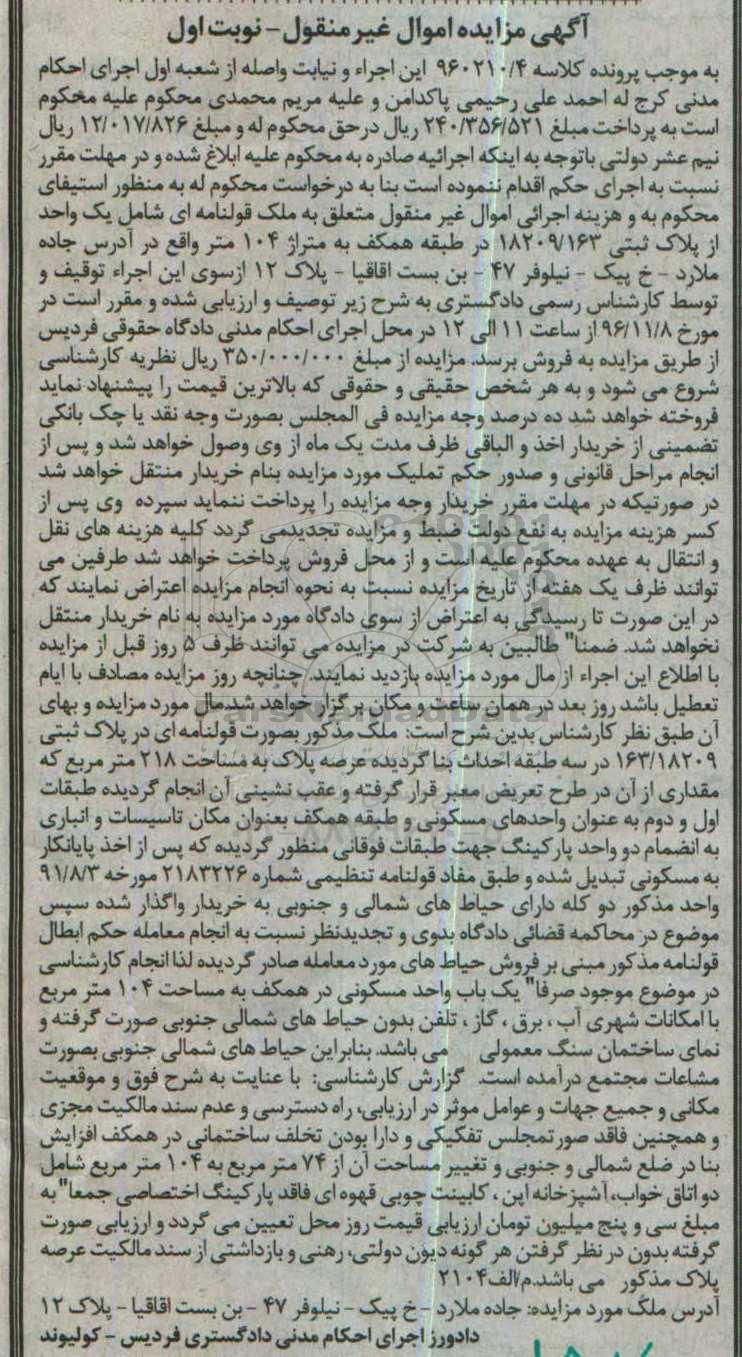 آگهی مزایده اموال غیر منقول - نوبت اول
به موجب پرونده کلاسه ۹۶۰۲۱۰/۴ این اجراء و نیابت واصله از شعبه اول اجرای احکام
مدنی کرج له احمد علی رحیمی پاکدامن و علیه مریم محمدی محکوم علیه محکوم
است به پرداخت مبلغ ۲۴۰/۳۵۶/۵۲۱ ریال درحق محکوم له و مبلغ ۱۲/۰۱۷/۸۲۶ ریال
نیم عشر دولتی باتوجه به اینکه اجرائیه صادره به محکوم علیه ابلاغ شده و در مهلت مقرر
نسبت به اجرای حکم اقدام ننموده است بنا به درخواست محکوم له به منظور استیفای
محکوم به و هزینه اجرائی اموال غیر منقول متعلق به ملک قولنامه ای شامل یک واحد
از پلاک ثبتی ۱۸۲۰۹/۱۶۳ در طبقه همکف به متراژ ۱۰۴ متر واقع در آدرس جاده
ملارد - خ پیک - نیلوفر ۴۷ - بن بست اقاقیا - پلاک ۱۲ ازسوی این اجراء توقیف و
توسط کارشناس رسمی دادگستری به شرح زیر توصیف و ارزیابی شده و مقرر است در
مورخ ۹۶/۱۱/۸ از ساعت ۱۱ الی ۱۲ در محل اجرای احکام مدنی دادگاه حقوقی فردیس
از طریق مزایده به فروش برسد. مزایده از مبلغ ۳۵۰/۰۰۰/۰۰۰ ریال نظریه کارشناسی
شروع می شود و به هر شخص حقیقی و حقوقی که بالاترین قیمت را پیشنهاد نماید
فروخته خواهد شد ده درصد وجه مزایده فی المجلس بصورت وجه نقد یا چک بانکی
تضمینی از خریدار اخذ و الباقی ظرف مدت یک ماه از وی وصول خواهد شد و پس از
انجام مراحل قانونی و صدور حکم تملیک مورد مزایده بنام خریدار منتقل خواهد شد
در صورتیکه در مهلت مقرر خریدار وجه مزایده را پرداخت ننماید سپرده وی پس از
کسر هزینه مزایده به نفع دولت ضبط و مزایده تجدیدمی گردد کلیه هزینه های نقل
و انتقال به عهده محکوم علیه است و از محل فروش پرداخت خواهد شد طرفین می
توانند ظرف یک هفته از تاریخ مزایده نسبت به نحوه انجام مزایده اعتراض نمایند که
در این صورت تا رسیدگی به اعتراض از سوی دادگاه مورد مزایده به نام خریدار منتقل
نخواهد شد. ضمنا" طالبین به شرکت در مزایده می توانند ظرف ۵ روز قبل از مزایده
با اطلاع این اجراء از مال مورد مزایده بازدید نمایند. چنانچه روز مزایده مصادف با ایام
تعطیل باشد روز بعد در همان ساعت و مکان برگزار خواهد شد.مال مورد مزایده و بهای
آن طبق نظر کارشناس بدین شرح است: ملک مذکور بصورت قولنامه ای در پلاک ثبتی
۱۶۳/۱۸۲۰۹ در سه طبقه احداث بنا گردیده عرصه پلاک به مساحت ۲۱۸ متر مربع که
مقداری از آن در طرح تعریض معبر قرار گرفته و عقب نشینی آن انجام گردیده طبقات
اول و دوم به عنوان واحدهای مسکونی و طبقه همکف بعنوان مکان تاسیسات و انباری
به انضمام دو واحد پارکینگ جهت طبقات فوقانی منظور گردیده که پس از اخذ پایانکار
به مسکونی تبدیل شده و طبق مفاد قولنامه تنظیمی شماره ۲۱۸۳۲۲۶ مورخه ۹۱/۸/۳
واحد مذکور دو کله دارای حیاط های شمالی و جنوبی به خریدار واگذار شده سپس
موضوع در محاکمه قضائی دادگاه بدوی و تجدیدنظر نسبت به انجام معامله حکم ابطال
قولنامه مذکور مبنی بر فروش حیاط های مورد معامله صادر گردیده لذا انجام کارشناسی
در موضوع موجود صرفا" یک باب واحد مسکونی در همکف به مساحت ۱۰۴ متر مربع
با امکانات شهری آب ، برق ، گاز ، تلفن بدون حیاط های شمالی جنوبی صورت گرفته و
نمای ساختمان سنگ معمولی می باشد. بنابراین حیاط های شمالی جنوبی بصورت
مشاعات مجتمع درآمده است. گزارش کارشناسی: با عنایت به شرح فوق و موقعیت
مکانی و جمیع جهات و عوامل موثر در ارزیابی، راه دسترسی و عدم سند مالکیت مجزی
و همچنین فاقد صورتمجلس تفکیکی و دارا بودن تخلف ساختمانی در همکف افزایش
بنا در ضلع شمالی و جنوبی و تغییر مساحت آن از ۷۴ متر مربع به ۱۰۴ متر مربع شامل
دو اتاق خواب، آشپزخانه اپن ، کابینت چوبی قهوه ای فاقد پارکینگ اختصاصی جمعا" به
مبلغ سی و پنج میلیون تومان ارزیابی قیمت روز محل تعیین می گردد و ارزیابی صورت
گرفته بدون در نظر گرفتن هر گونه دیون دولتی، رهنی و بازداشتی از سند مالکیت عرصه
پلاک مذکور می باشد.م/الف۲۱۰۴
آدرس ملک مورد مزایده: جاده ملارد -خ پیک - نیلوفر ۴۷ - بن بست اقاقیا - پلاک ۱۲
دادورز اجرای احکام مدنی دادگستری فردیس - کولیوند
ParsNamadData